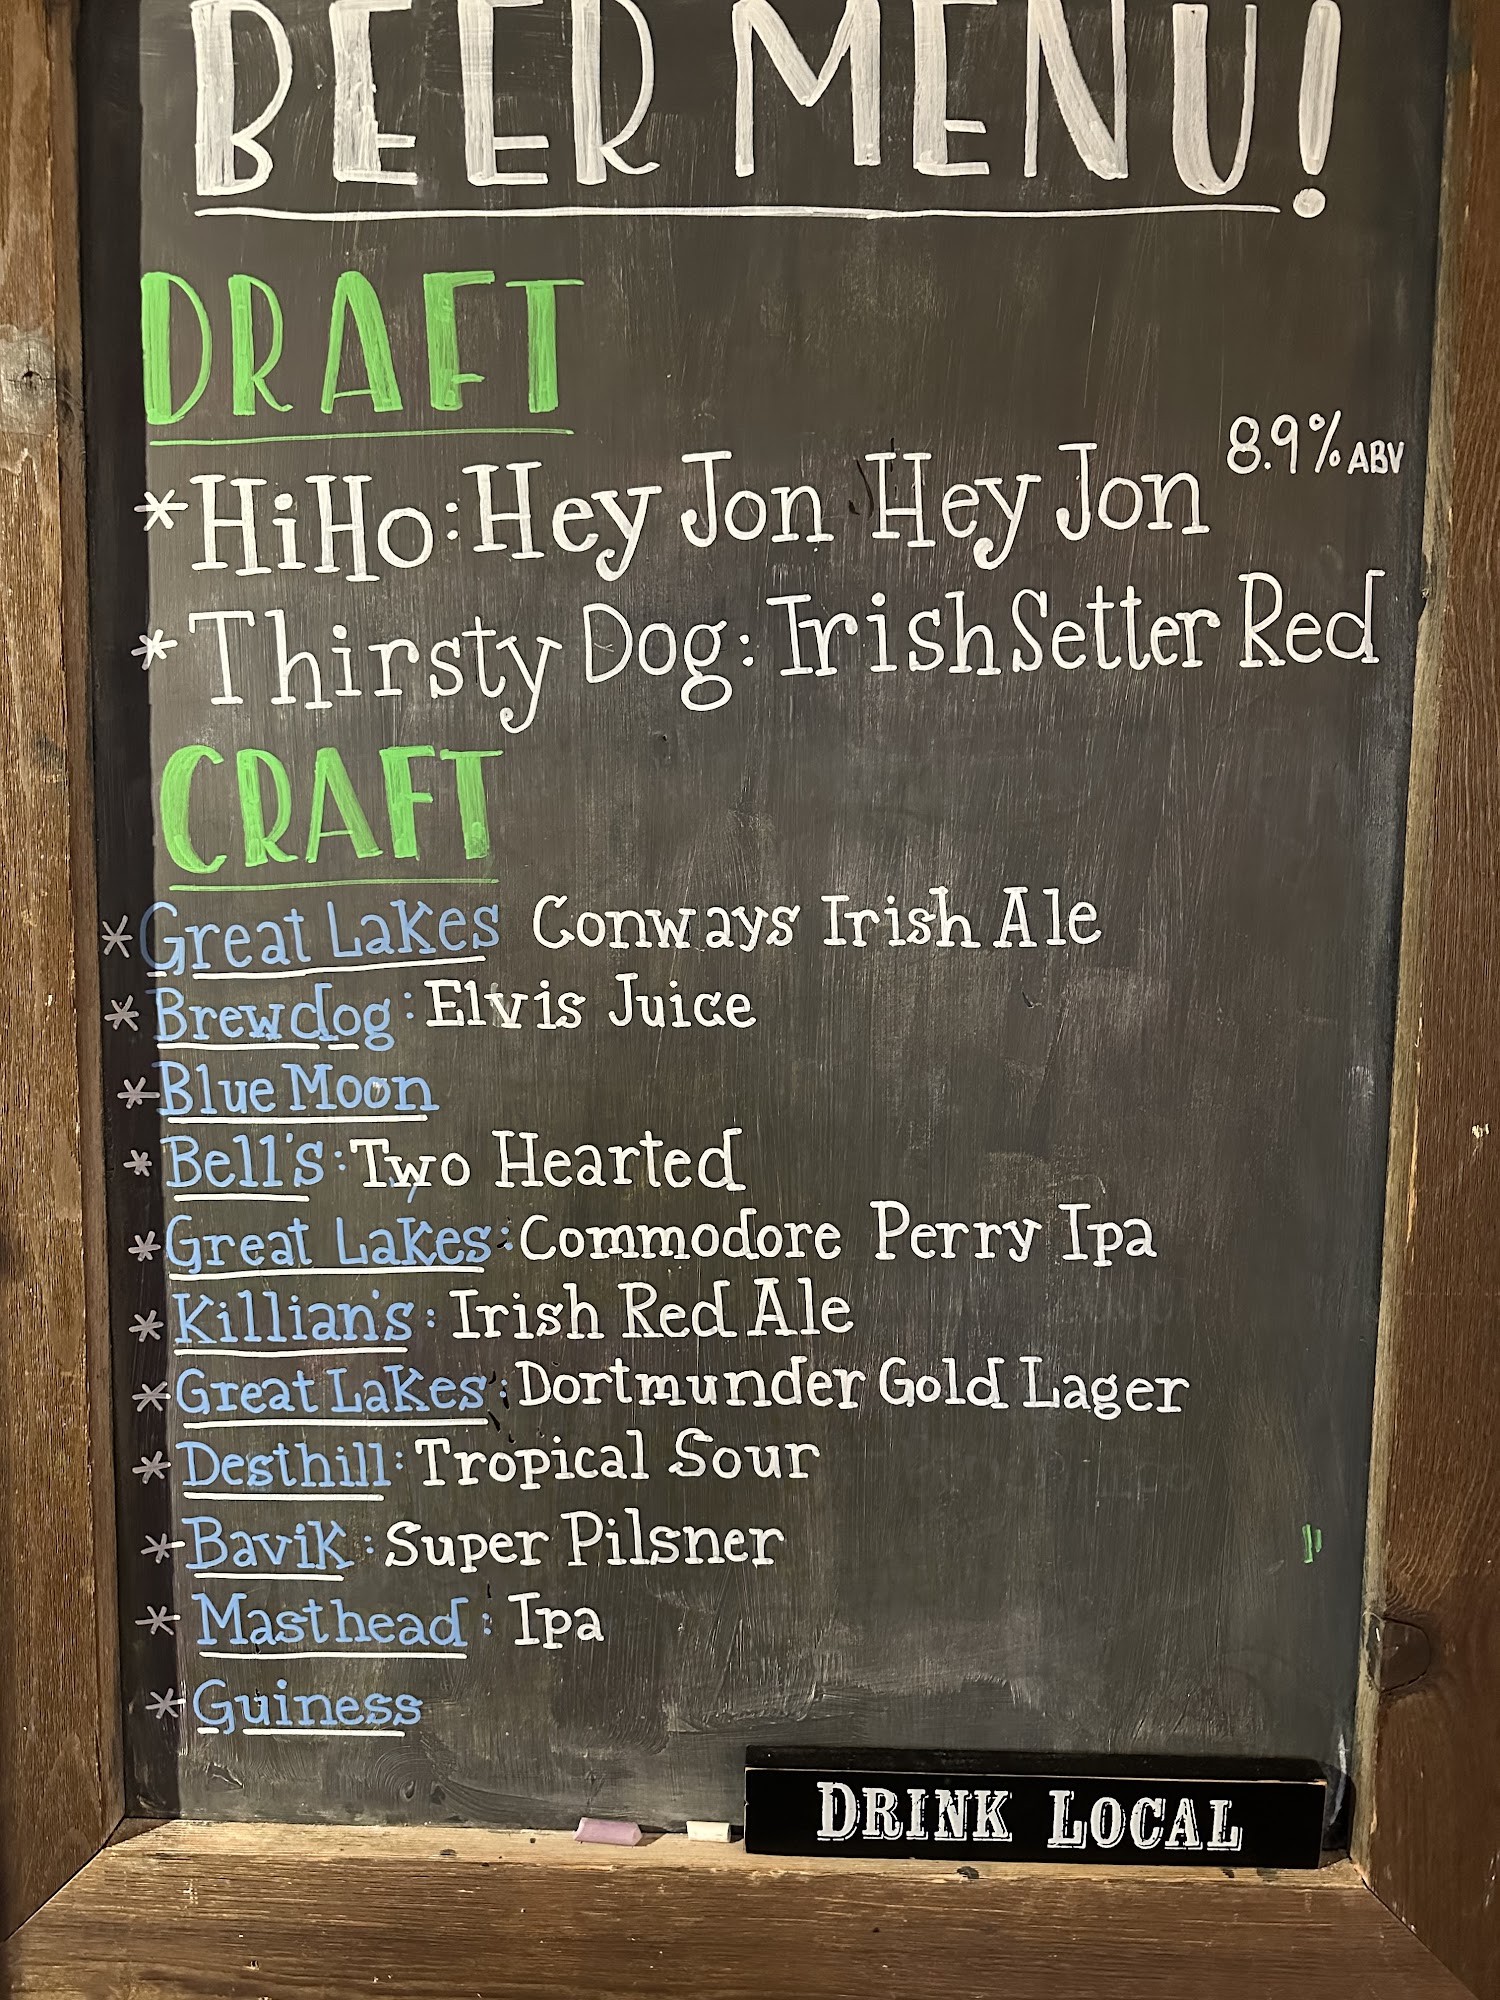 BEER MENU!
DRAFT
*HiHo: Hey Jon, Hey Jon 8.9% ABV
*Thirsty Dog: Irish Setter Red
CRAFT
*Great Lakes Conways Irish Ale
*Brewdog: Elvis Juice
*Blue Moon
*Bell's: Two Hearted
*Great Lakes: Commodore Perry Ipa
*Killian's: Irish Red Ale
*Great Lakes: Dortmunder Gold Lager
*Desthill: Tropical Sour
*Bavik: Super Pilsner
*Masthead: Ipa
*Guiness
DRINK LOCAL